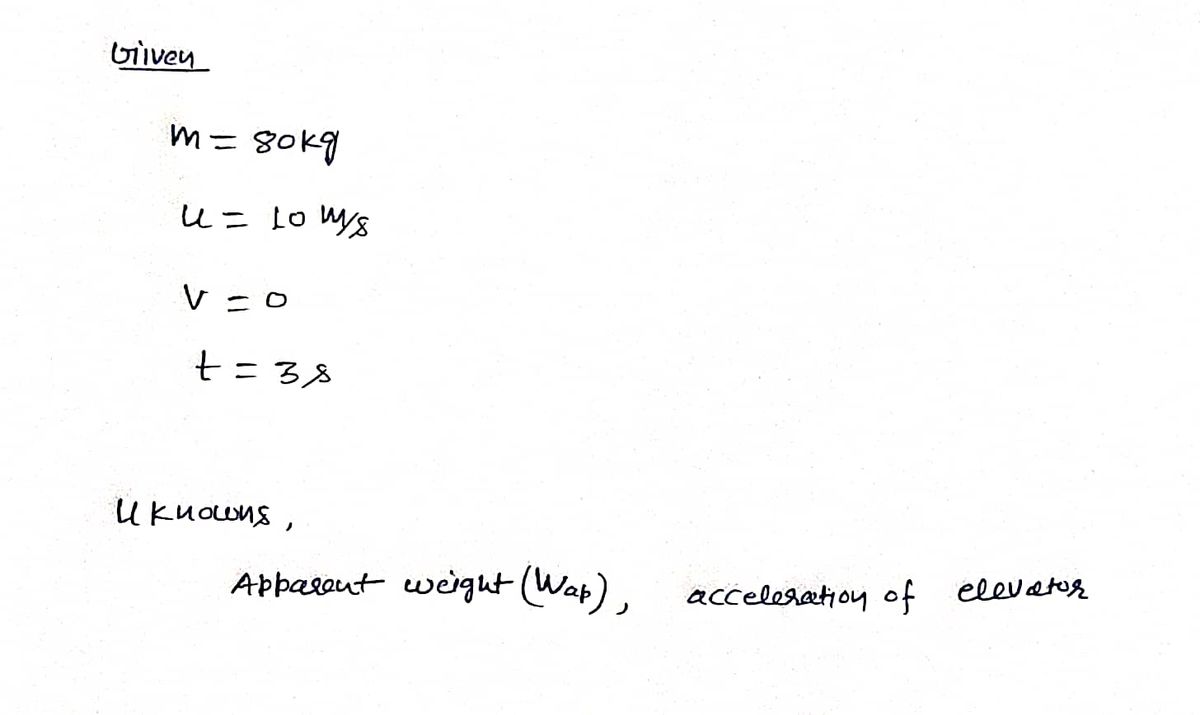 Given
m = 80kg
u = 10 m/s
v = 0
t = 3s
Uknowns,
Apparent weight (Wap), acceleration of elevator